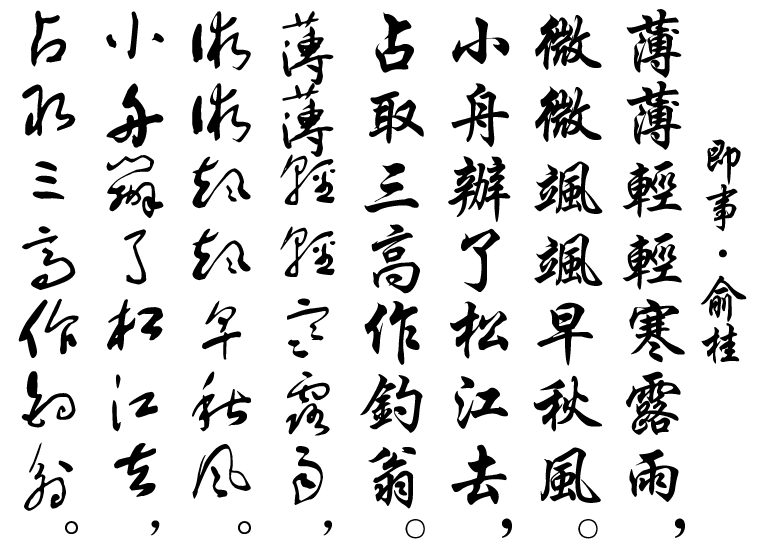 即事·俞桂
薄薄輕輕寒露雨，
微微颯颯早秋風。
小舟辦了松江去，
占取三高作釣翁。
薄薄輕輕寒露雨，
微微颯颯早秋風。
小舟辦了松江去，
占取三高作釣翁。